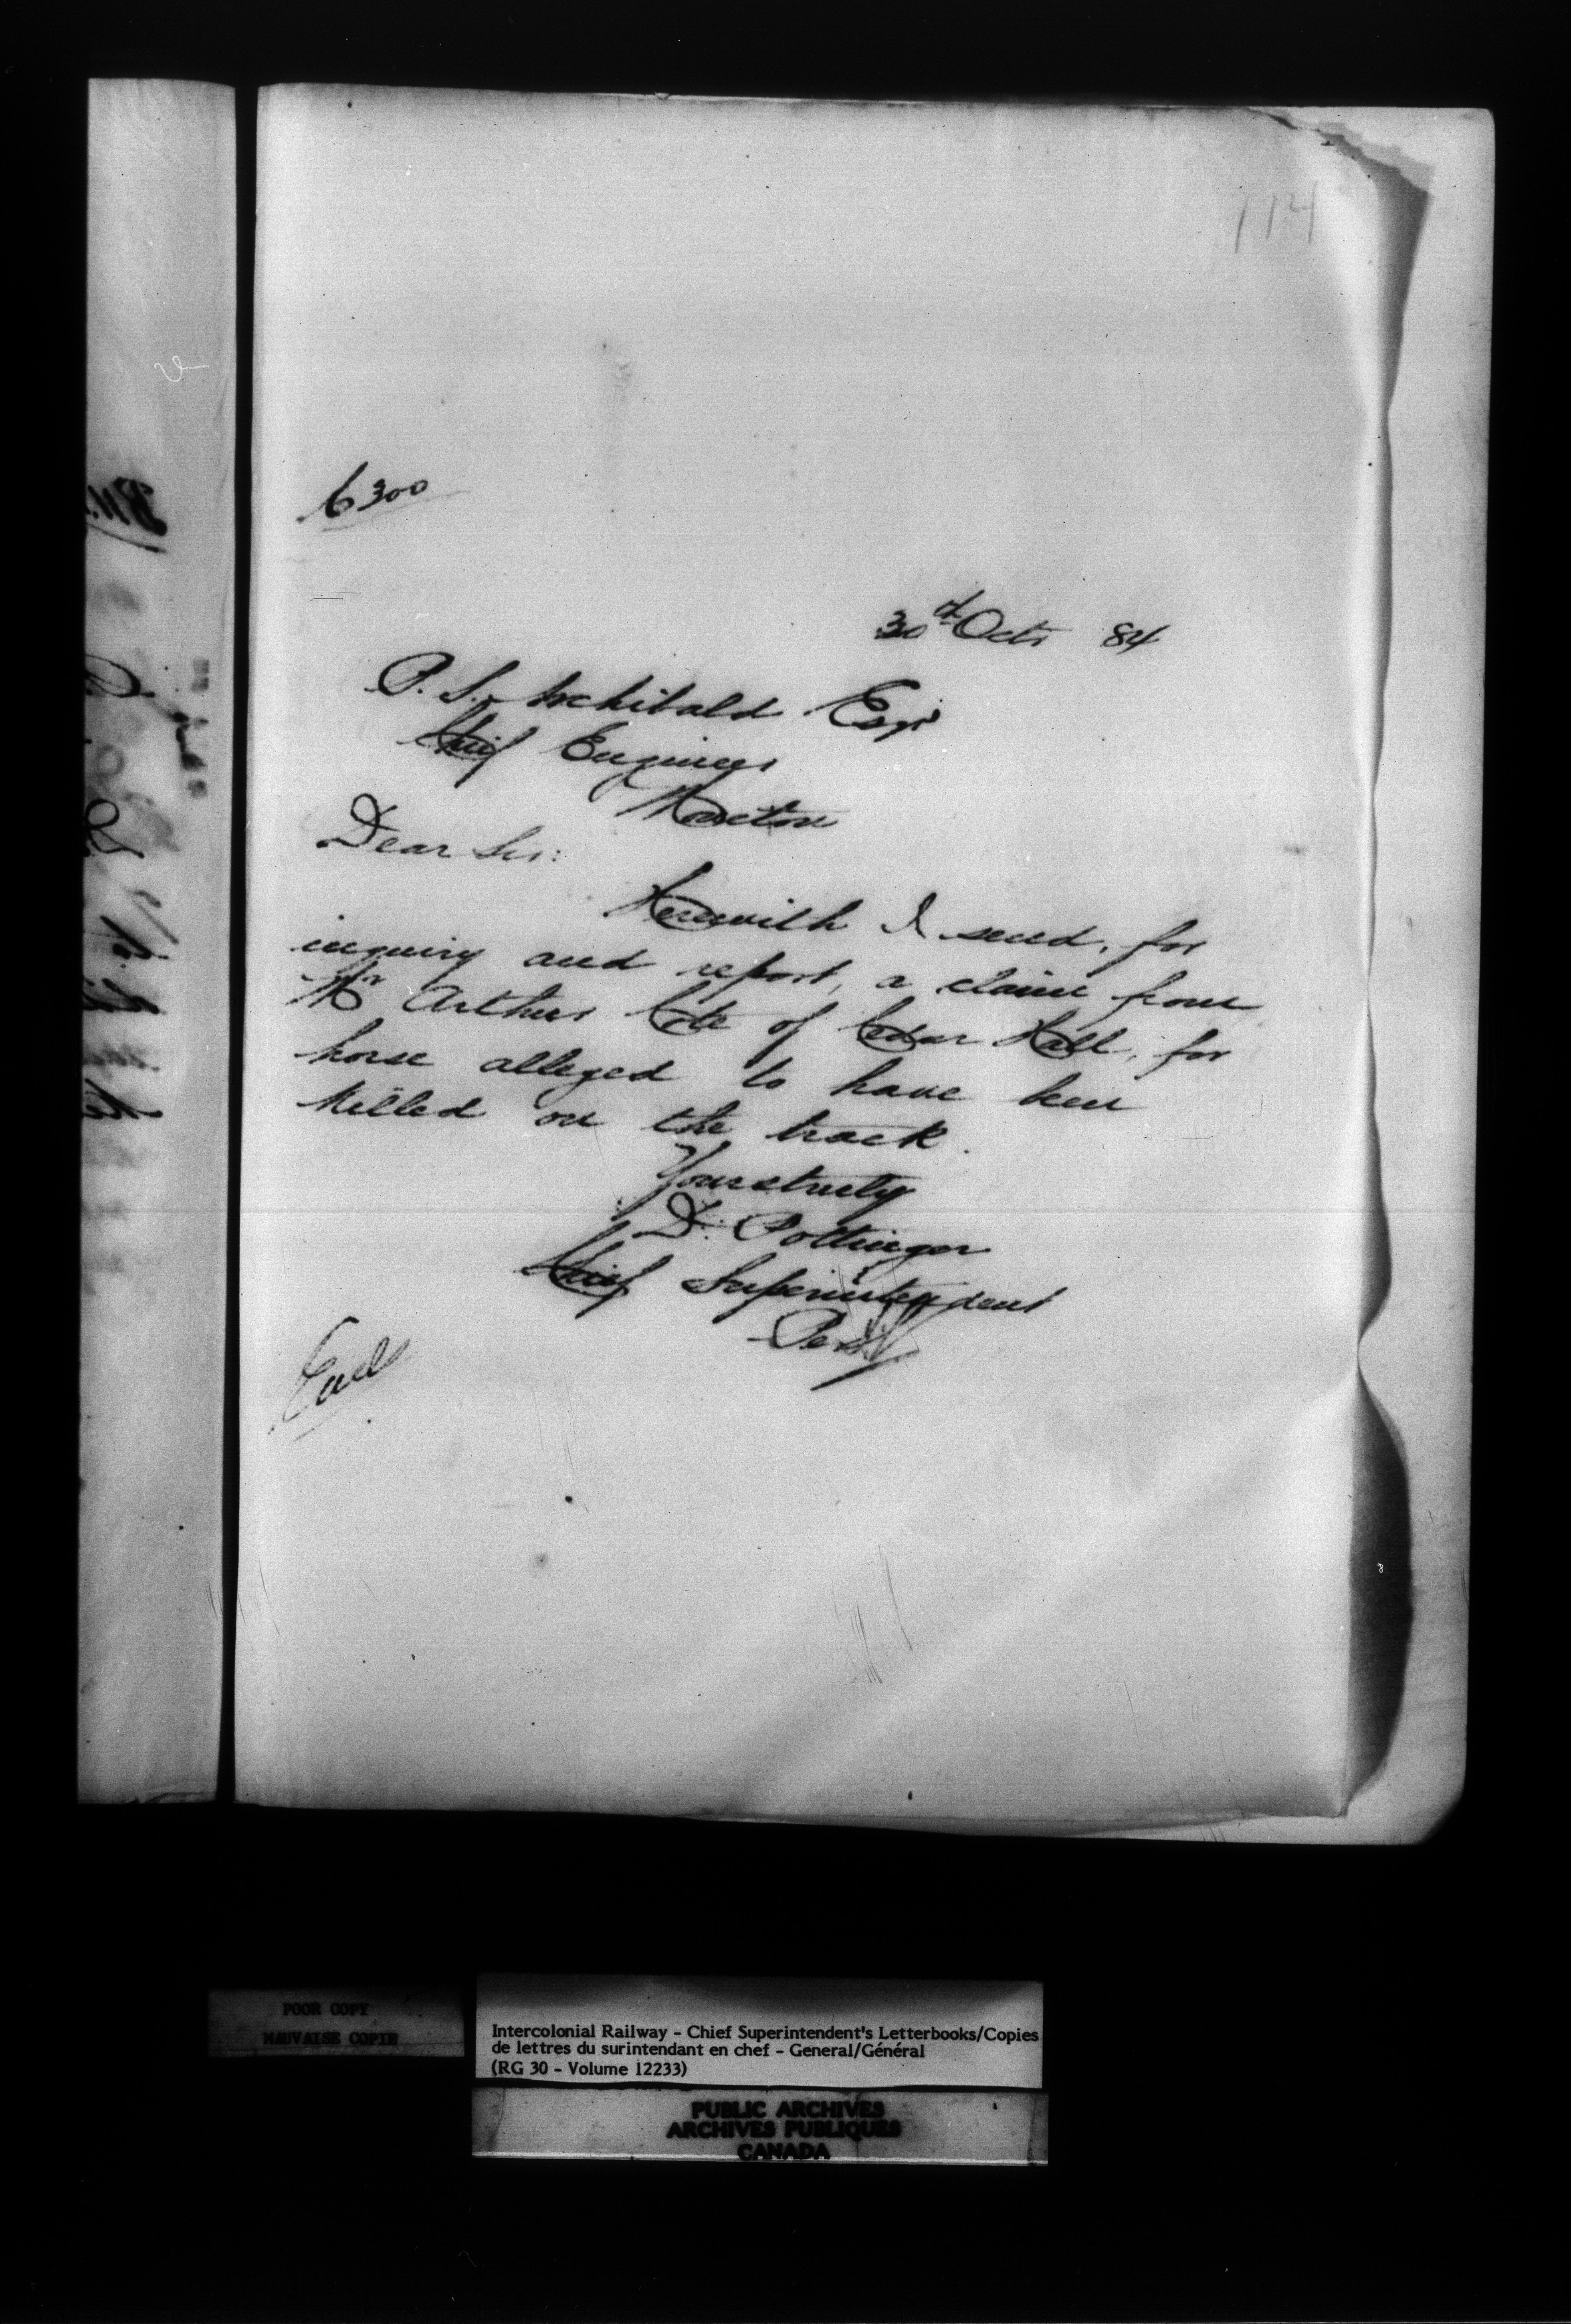 114
6300
30th Octr 84
P. S. Archibald Esqr
Chief Engineer
Moncton
Dear Sir:
Herewith I send, for
inquiry and report, a claim from
Mr Arthur Cote of Cedar Hall, for
horse alleged to have been
killed on the track.
Yours truly
D. Pottinger
Chief Superintendent
Per
Encl
POOR COPY
MAUVAISE COPIE
Intercolonial Railway - Chief Superintendent's Letterbooks/Copies
de lettres du surintendant en chef - General/Général
(RG 30 - Volume 12233)
PUBLIC ARCHIVES
ARCHIVES PUBLIQUES
CANADA